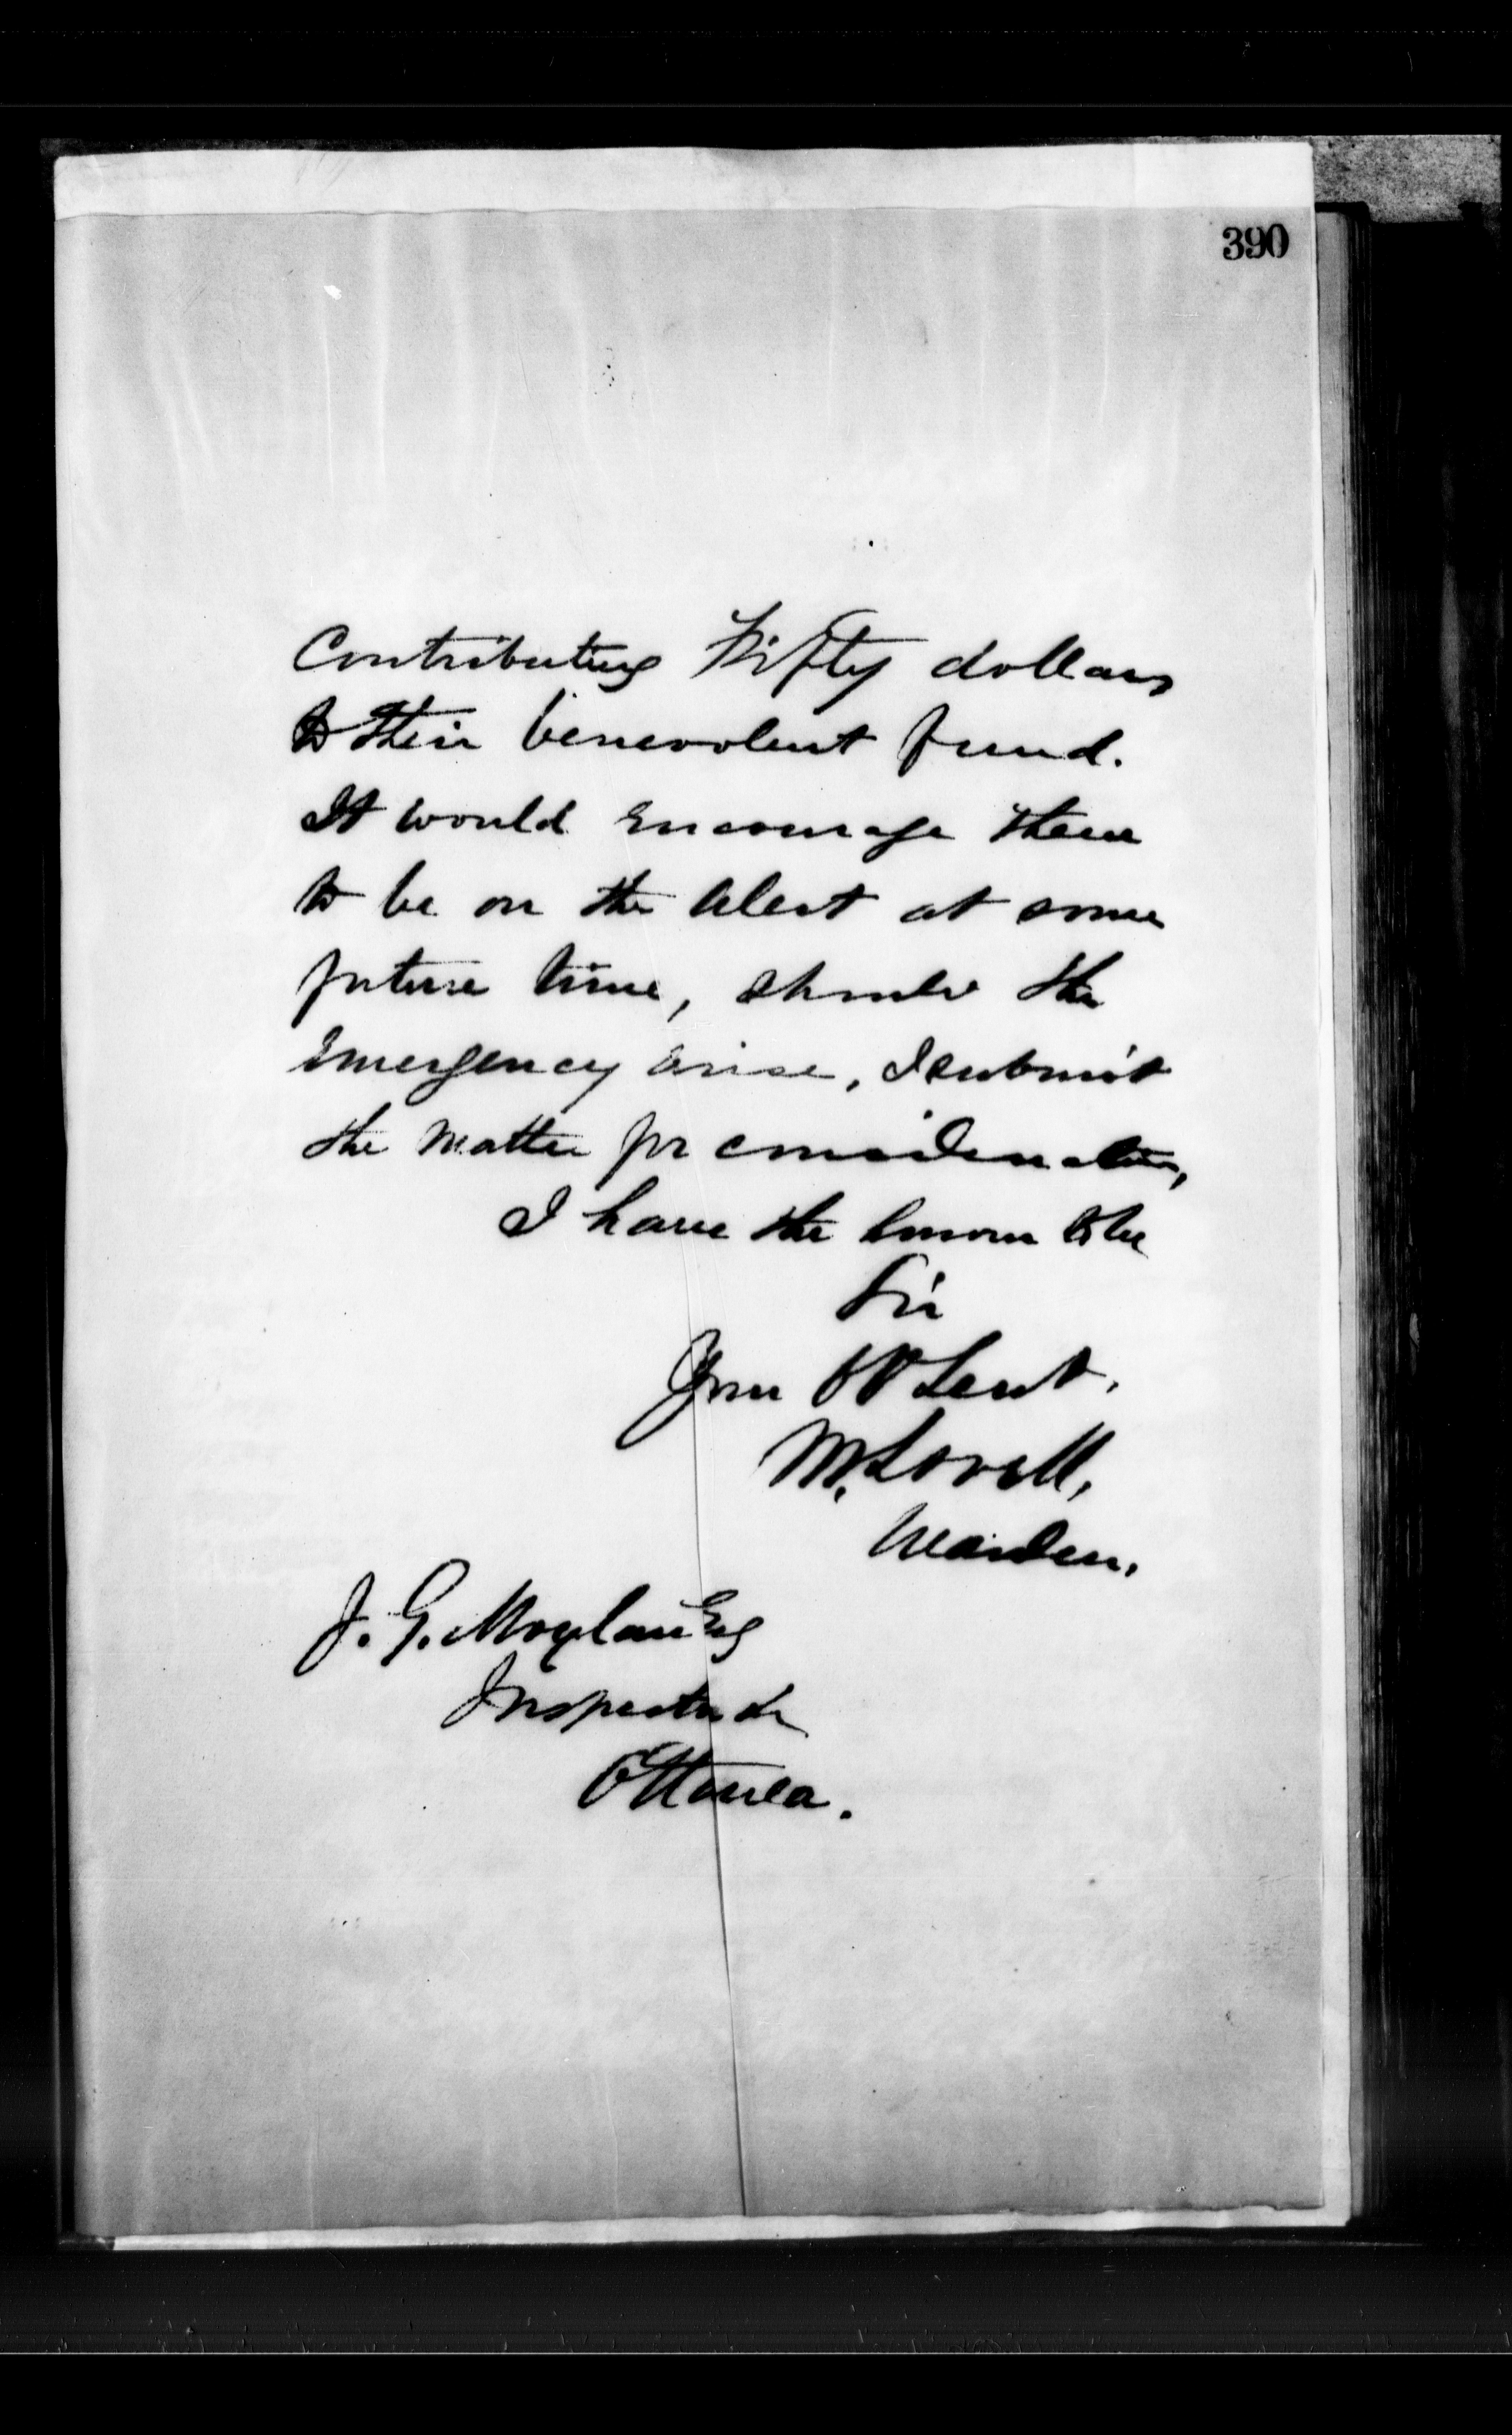 390
Contributing Fifty dollars
to their benevolent fund.
It would encourage them
to be on the alert at some
future time, should the
emergency arise, I submit
the matter for consideration,
I have the honour to be
Sir
Your Ob Sevt.
M. Lavell,
Warden.
J. G. Moylan Esq
Inspector &c
Ottawa.